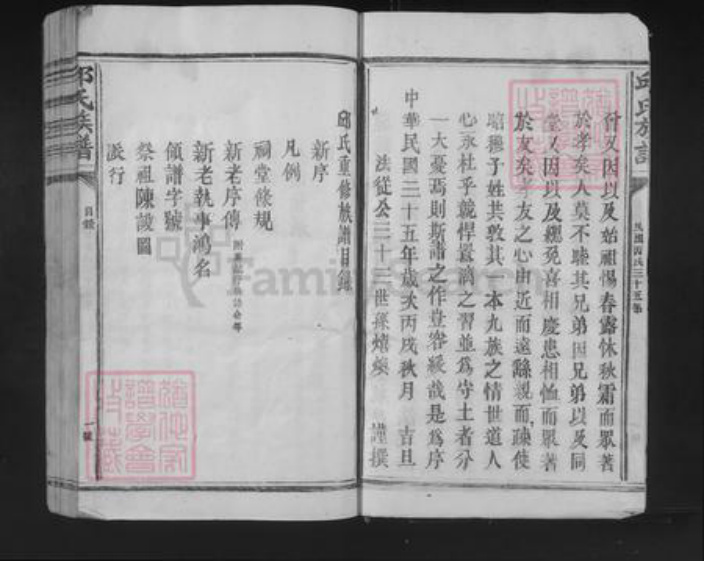 邱氏族譜
民國丙戌三十五年
付又因以及始祖惕春露怵秋霜而眾著
於孝矣人莫不睦其兄弟因兄弟以及同
堂又因以及緦免喜相慶患相恤而眾著
於友矣孝友之心由近而遠繇親而疎使
昭穆子姓共敦其一本九族之情世道人
心永杜乎競悍囂漓之習並為守土者分
一大憂焉則斯譜之作豈容緩哉是為序
中華民國三十五年歲次丙戌秋月 吉旦
法從公三十二世孫 謹撰
邱氏重修族譜目錄
新序
凡例
祠堂條規
新老序傳
新老執事鴻名
領譜字號
祭祖陳設圖
派行
邱氏族譜
目錄
一號
FamilySearch